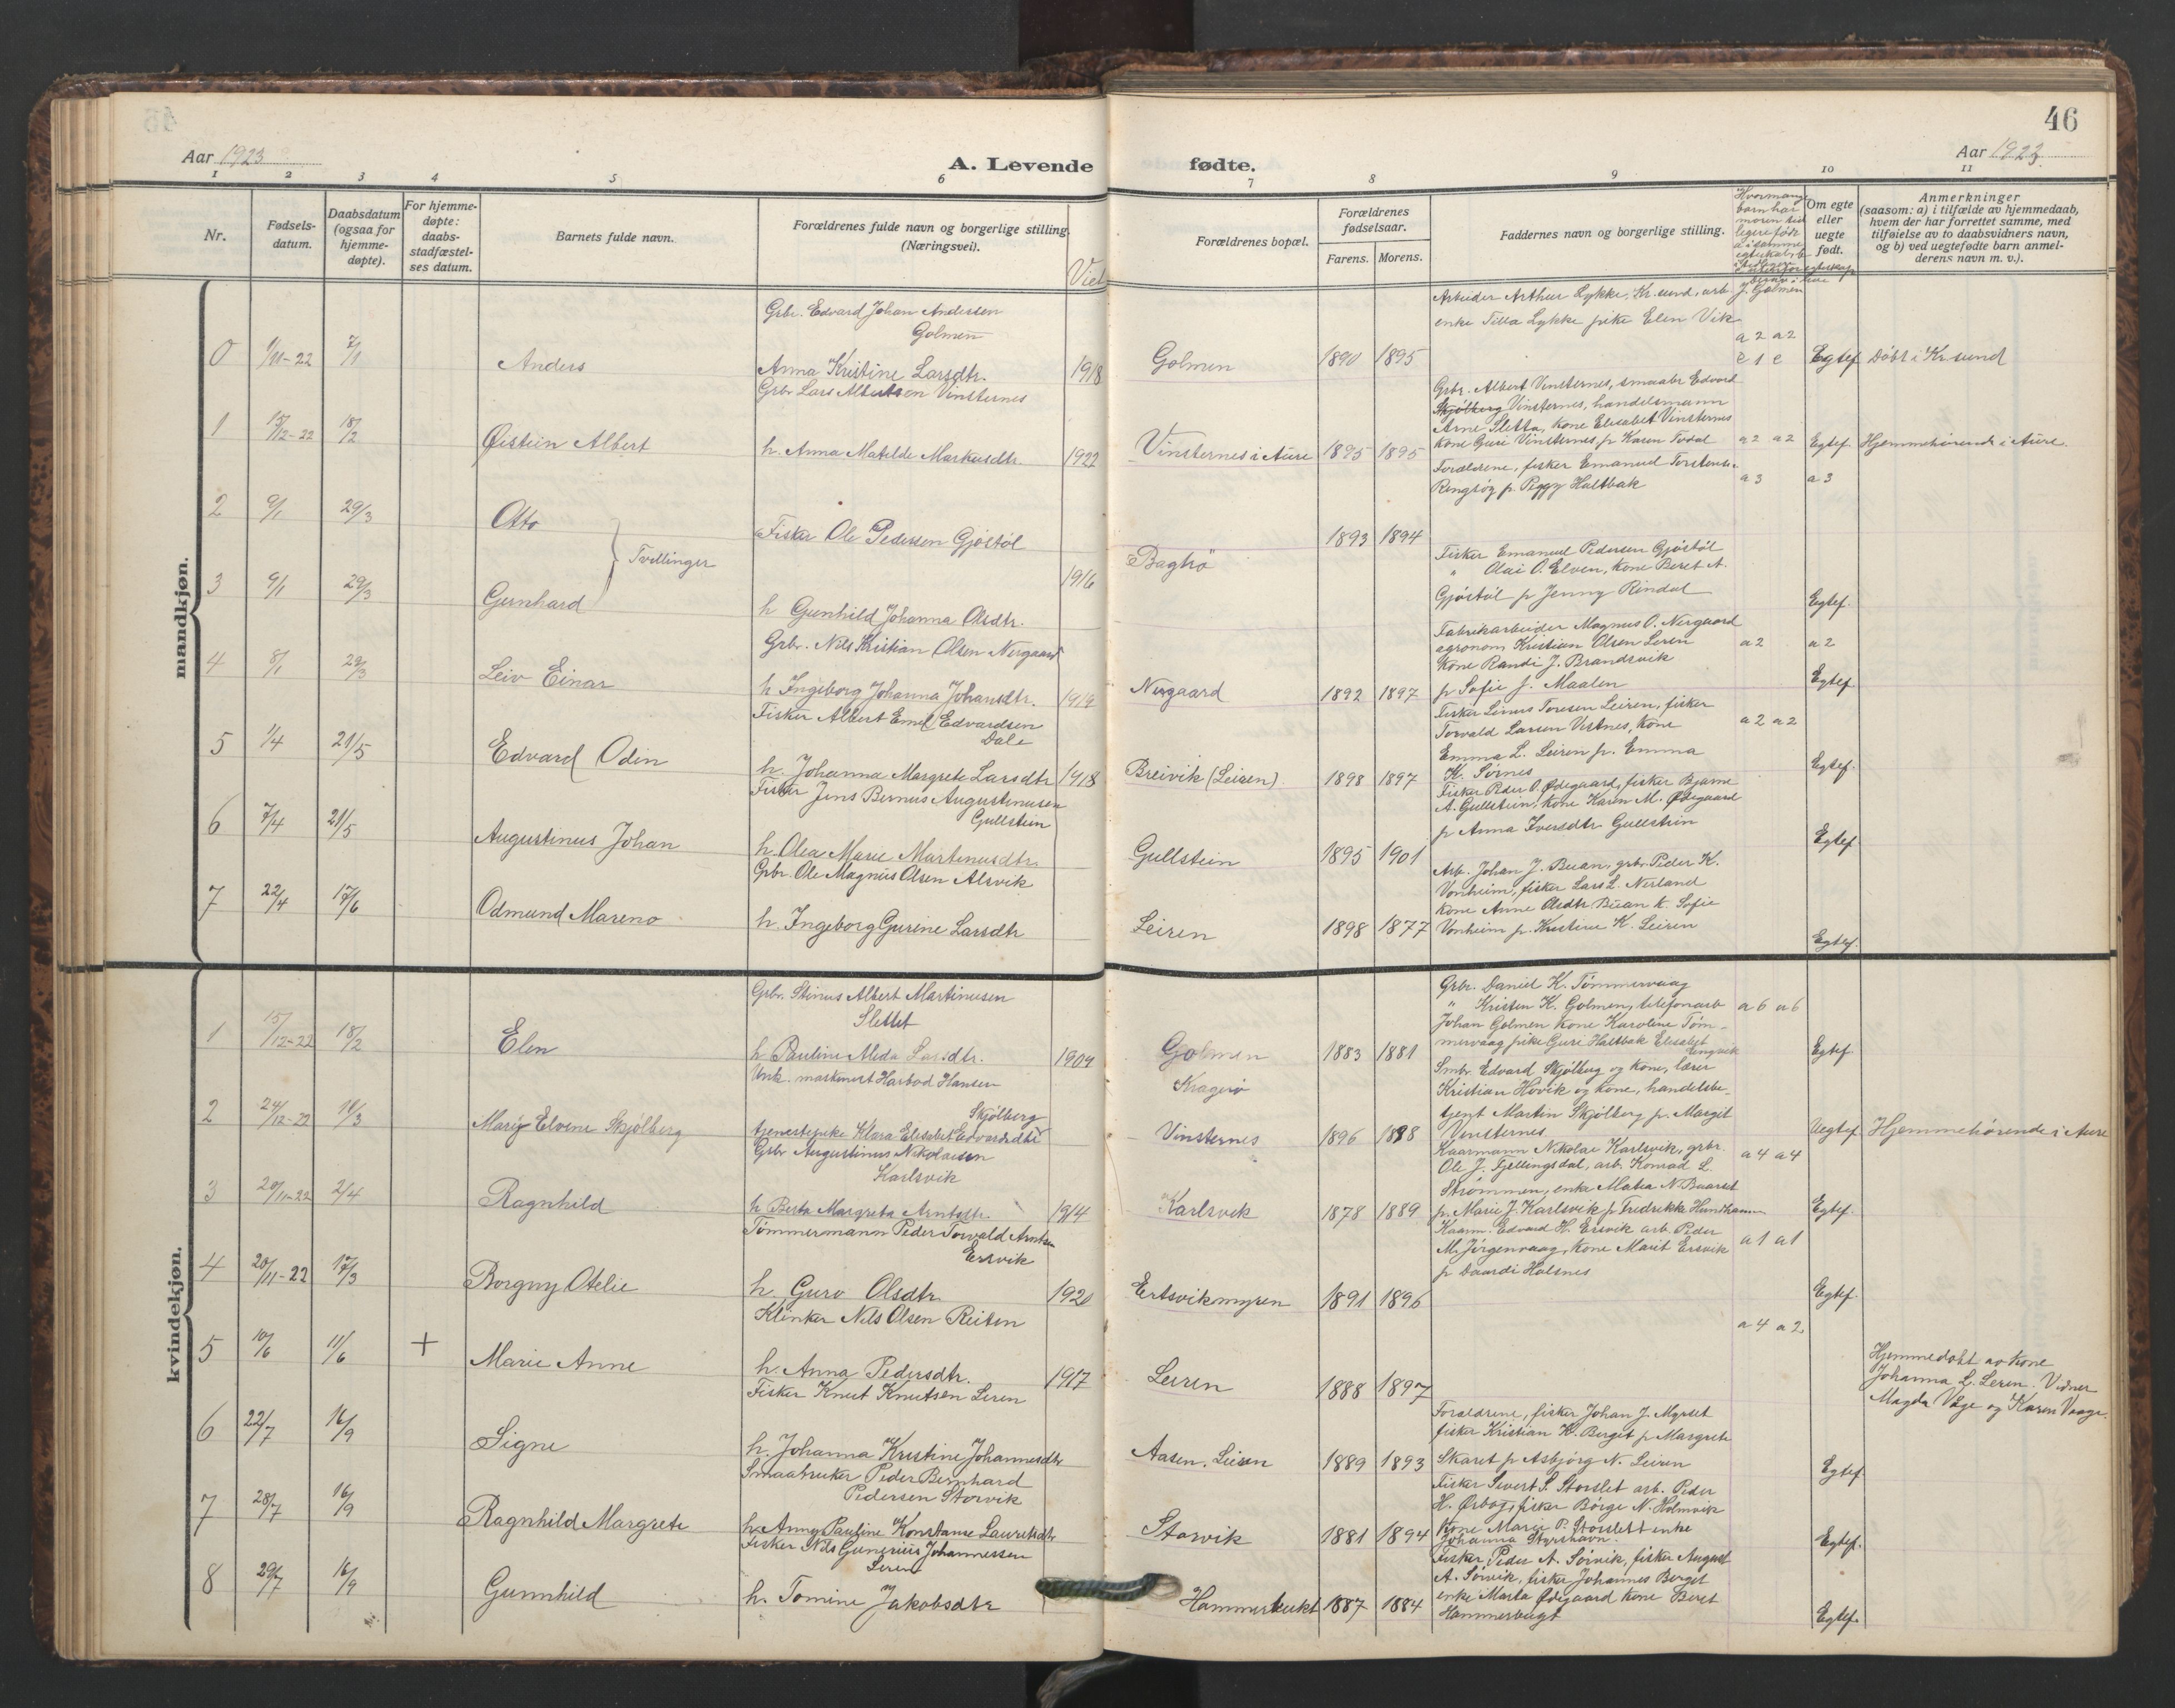 46
Aar 1923
A. Levende
fødte.
Aar 1923
1 2 3 4 5 6 7 8 9 10 11
Nr.
Fødsels-
datum.
Daabsdatum
(ogsaa for
hjemme-
døpte).
For hjemme-
døpte:
daabs-
stadfæstel-
ses datum.
Barnets fulde navn.
Forældrenes fulde navn og borgerlige stilling.
(Næringsvei).
Viet
Forældrenes bopæl.
Forældrenes
fødselsaar.
Farens. Morens.
Faddernes navn og borgerlige stilling.
Om egte
eller
uegte
født.
Anmerkninger
(saasom: a) i tilfælde av hjemmedaab,
hvem der har forrettet samme, med
tilføielse av to daabsvidners navn,
og b) ved uegtefødte barn anmel-
derens navn m. v.).
mandkjøn.
Grbr. Edvard Johan Andersen
Golmen
Arbeider Arthur Lykke, Kr.sund, arb. J. Golmen
enke Tilla Lykke pike Elen Vik
a 2 a 2
0 1/11-22 7/1 Anders
Anna Kristine Larsdtr. 1918
Golmen 1890 1895 Egtef. Døbt i Kr.sund
Grbr Lars Albertsen Vinsternes
Grbr. Albert Vinsternes, smaabr Edvard
Skjølberg Vinsternes, handelsmann
Arne Sletta, kone Elisabet Vinsternes
kone Guri Vinsternes, p Karen Todal a 2 a 2
1 15/12-22 18/2 Øistein Albert
h. Anna Matilde Markusdtr. 1922
Vinsternes i Aure 1895 1895 Egtef. Hjemmehørende i Aure.
Forældrene, fisker Emanuel Torstens.
Ringsøy p. Peggy Haltbak a 3 a 3
2 9/1 29/3 Otto
Tvillinger
Fisker Ole Pedersen Gjøstøl
1916
Bagtrø 1893 1894
Fisker Emanuel Pedersen Gjøstøl
" Olai O. Elven, kone Beret A.
Gjøstøl p Jenny Rindal
3 9/1 29/3 Gernhard
h Gunhild Johanna Olsdtr. Egtef.
Grbr. Nils Kristian Olsen Nergaard
Fabrikarbeider Magnus O. Nergaard
agronom Kristian Olsen Leren a 2 a 2
kone Randi J. Brandsvik
p Sofie J. Maalen
4 8/1 29/3 Leiv Einar
h Ingeborg Johanna Johansdtr. 1919
Nergaard 1892 1897 Egtef.
Fisker Albert Emil Edvardsen
Dale
Fisker Linus Toresen Leiren, fisker
Torvald Larsen Vestnes, kone a 2 a 2
Emma L. Leiren p. Emma
K. Sørnes
5 1/4 21/5 Edvard Odin
h. Johanna Margrete Larsdtr 1918
Breivik (Leiren). 1898 1897 Egtef.
Fisker Jens Bernus Augustinusen
Gullstein
Fisker Peder O. Ødegaard, fisker Bjarne
A. Gullstein, kone Karen M. Ødegaard
p Anna Iversdtr Gullstein
6 7/4 21/5 Augustinus Johan
h. Olea Marie Martinusdtr.
Gullstein 1895 1901 Egtef.
Grbr. Ole Magnus Olsen Alsvik
Arb. Johan J. Buan, grbr. Peder K.
Vonheim, fisker Lars L. Nerland
kone Anne Olsdtr Buan k. Sofie
Vonheim p. Kristine K. Leiren
7 22/4 17/6 Odmund Mareno
h. Ingeborg Gurine Larsdtr
Leiren 1898 1877 Egtef.
kvindekjøn.
Grbr. Stinus Albert Martinusen
Slettet
Grbr. Daniel K. Tømmervaag
" Kristen K. Golmen, telefonarb a 6 a 6
Johan Golmen kone Karoline Tøm-
mervaag pike Guri Haltbak Elisabet
1 15/12-22 18/2 Elen
h Pauline Alida Larsdtr. 1904
Golmen 1883 1881 Egtef.
Unk. maskinist Harbod Hansen
Kragerø
Smbr. Edvard Skjølberg og kone, lærer
Kristian Hovik og kone, handelsbe-
tjent Martin Skjølberg p. Margit
Vinsternes
2 24/12-22 18/3 Mary Elvine Skjølberg
Skjølberg
tjenestepike Klara Elisabet Edvardsdtr
Vinsternes 1896 1898 Uegtef. Hjemmehørende i Aure
Grbr Augustinus Nikolaisen
Karlsvik
Kaarmann Nikolai Karlsvik, grbr.
Ole J. Fjellingsdal, arb. Konrad L. a 4 a 4
Strømmen, enke Matea N. Baarset
p. Marie J. Karlsvik p. Fredrikke Hundhammer
3 20/11-22 2/4 Ragnhild
h Berta Margreta Arntsdtr. 1914
Karlsvik 1878 1889 Egtef.
Tømmermann Peder Torvald Arntsen
Ersvik
Kaarm. Edvard H. Ersvik arb. Peder
M. Jørgenvaag, kone Marit Ersvik a 1 a 1
p Daardi Halsnes
4 20/11-22 17/3 Borgny Otelie
h. Guro Olsdtr. 1920
Ertsvikmyren 1891 1896 Egtef.
Klinker Nils Olsen Reiten
a 4 a 2
5 10/6 11/6 + Marie Anne
h. Anna Pedersdtr. 1917
Leiren 1888 1897
Hjemmedøbt av kone
Johanna L. Leren. Vidner
Magda Våge og Karen Vaage.
Fisker Knut Knutsen Leren
Forældrene, fisker Johan J. Myrset
fisker Kristian K. Berget p Margrete
Skaret p Asbjørg N. Leiren
6 22/7 16/9 Signe
h. Johanna Kristine Johannesdtr
Aasen, Leiren 1889 1893 Egtef.
Smaabruker Peder Bernhard
Pedersen Storvik
Fisker Sivert S. Storslet arb. Peder
H. Ørbog, fisker Børge N. Holmvik
kone Marie P. Storslett enke
Johanna Styrshavn.
7 28/7 16/9 Ragnhild Margrete
h. Anny Pauline Konstanse Lauritsdtr
Storvik 1881 1894 Egtef.
Fisker Nils Gunerius Johannessen
Leren
Fisker Peder A. Sørvik, fisker August
A. Sørvik, fisker Johannes Berget
enke Marta Ødegaard kone Beret
Hammerbugt
8 29/7 16/9 Gunnhild
h. Tomine Jakobsdtr
Hammerbukt 1887 1884 Egtef.